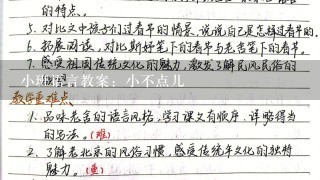 的特点。
5. 对比文中孩子们过春节的情景,说说自己是怎样过春节的。
6. 拓展阅读,对比斯妤笔下的春节与老舍笔下的春节。
7. 感受祖国传统文化的魅力,激发了解民风民俗的
小班语言教案:小不点儿
教学重难点
1. 品味老舍的语言风格,学习课文有顺序、详略得当
的写法。(难)
2. 了解老北京的风俗习惯,感受传统年文化的独特
魅力。(重)